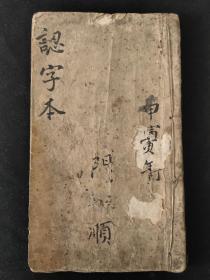 甲寅年訂
順
認字本